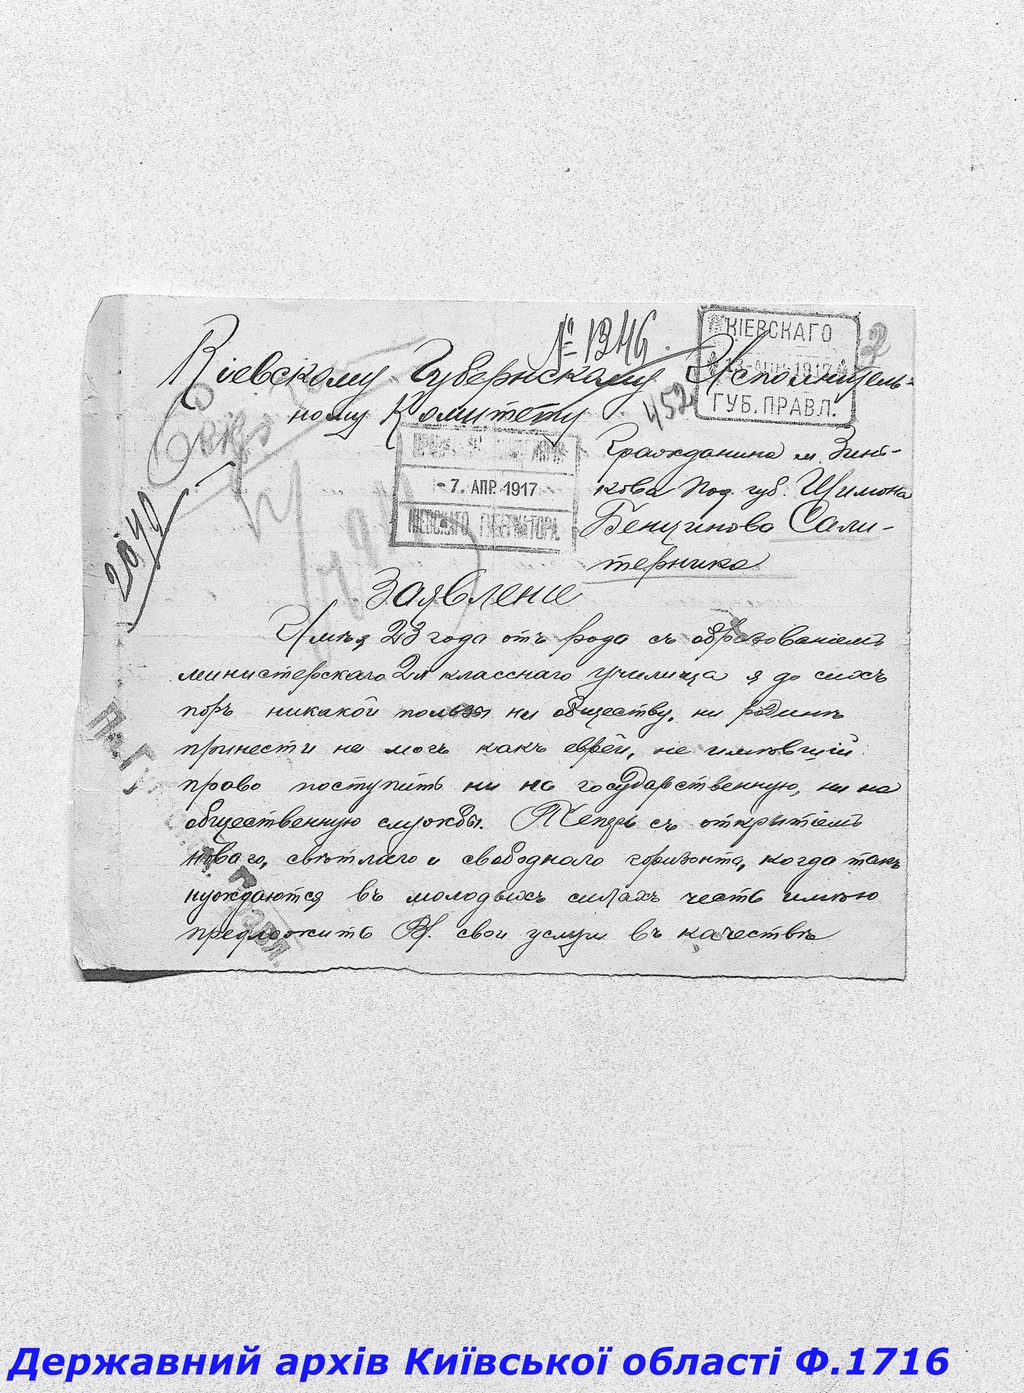 № 1346.
КІЕВСКАГО
1917
ГУБ. ПРАВЛ.
2
Кіевскому Губернскому Исполнитель-
ному Комитету
452
Гражданина м. Зинь-
кова Под. губ. Шимона
Бенціонова Сали-
терника
- 7. АПР. 1917
КІЕВСКАГО ГУБЕРНАТОРА.
2040
Заявление
Имѣя 23 года отъ рода съ образованіемъ
министерскаго 2хъ класснаго училища я до сихъ
поръ никакой пользы ни обществу, ни родинѣ
принести не могъ какъ еврей, не имѣвшій
право поступить ни на государственную, ни на
общественную службы. Теперь съ открытіемъ
новаго, свѣтлаго и свободнаго горизонта, когда такъ
нуждаются въ молодыхъ силахъ честь имѣю
предложить В. свои услуги въ качествѣ
Державний архів Київської області Ф.1716